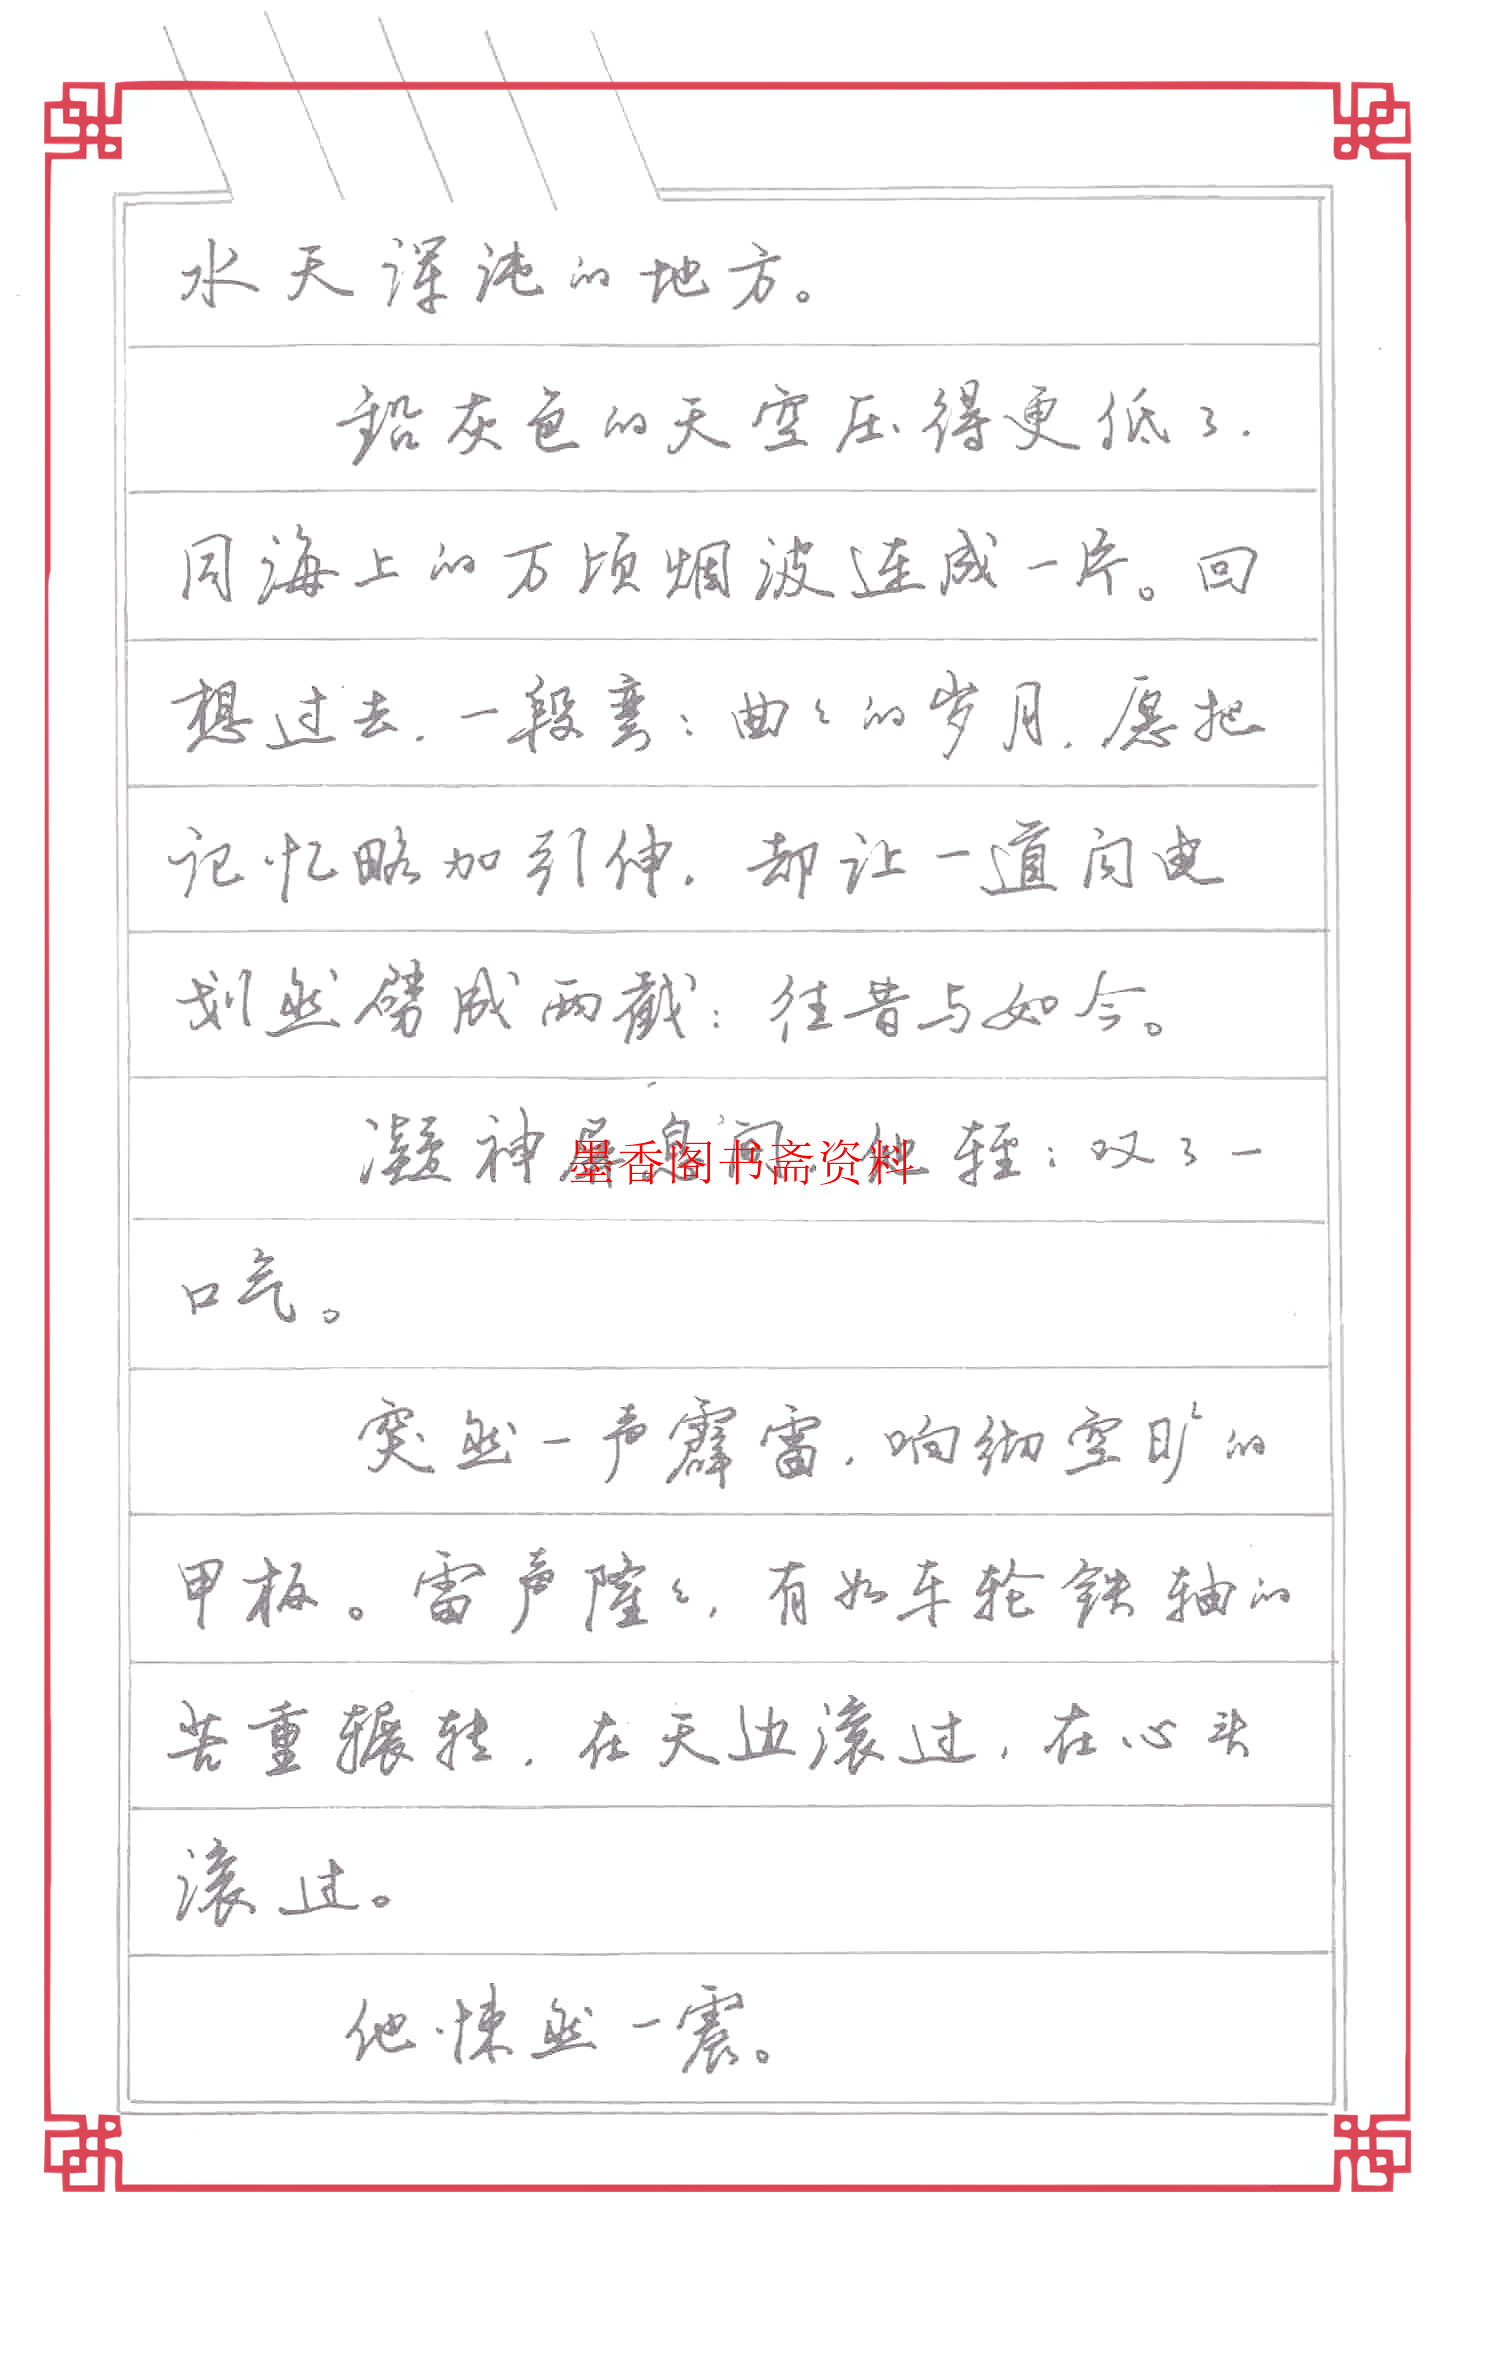 水天浑沌的地方。
铅灰色的天空压得更低了.
同海上的万顷烟波连成一片。回
想过去,一段弯:曲々的岁月,愿把
记忆略加引伸,却让一道闪电
划然劈成两截:往昔与如今。
凝神屏息间,他轻:叹了一
墨香阁书斋资料
口气。
突然一声霹雷,响彻空旷的
甲板。雷声隆々,有如车轮铁轴的
苦重辗转,在天边滚过,在心头
滚过。
他悚然一震。